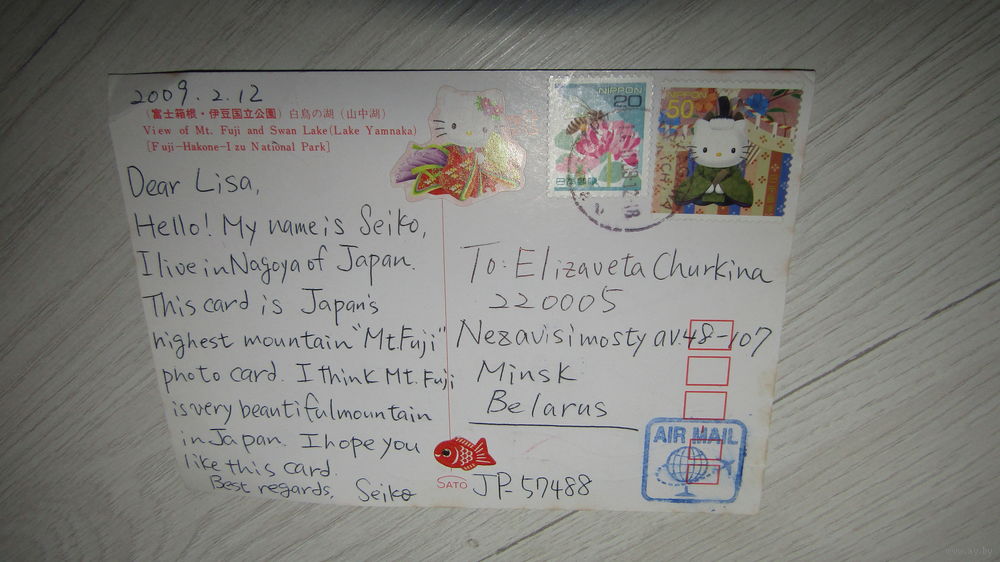 2009.2.12
(富士箱根・伊豆国立公園) 白鳥の湖 (山中湖)
View of Mt. Fuji and Swan Lake(Lake Yamnaka)
[Fuji-Hakone-Izu National Park]
Dear Lisa,
Hello! My name is Seiko,
I live in Nagoya of Japan.
This card is Japan's
highest mountain "Mt.Fuji"
photo card. I think Mt. Fuji
is very beautiful mountain
in Japan. I hope you
like this card.
Best regards, Seiko
SATO
NIPPON
20
日本郵便
NIPPON
50
To: Elizaveta Churkina
220005
Nezavisimosty av.48-107
Minsk
Belarus
JP-57488
AIR MAIL
www.ay.by